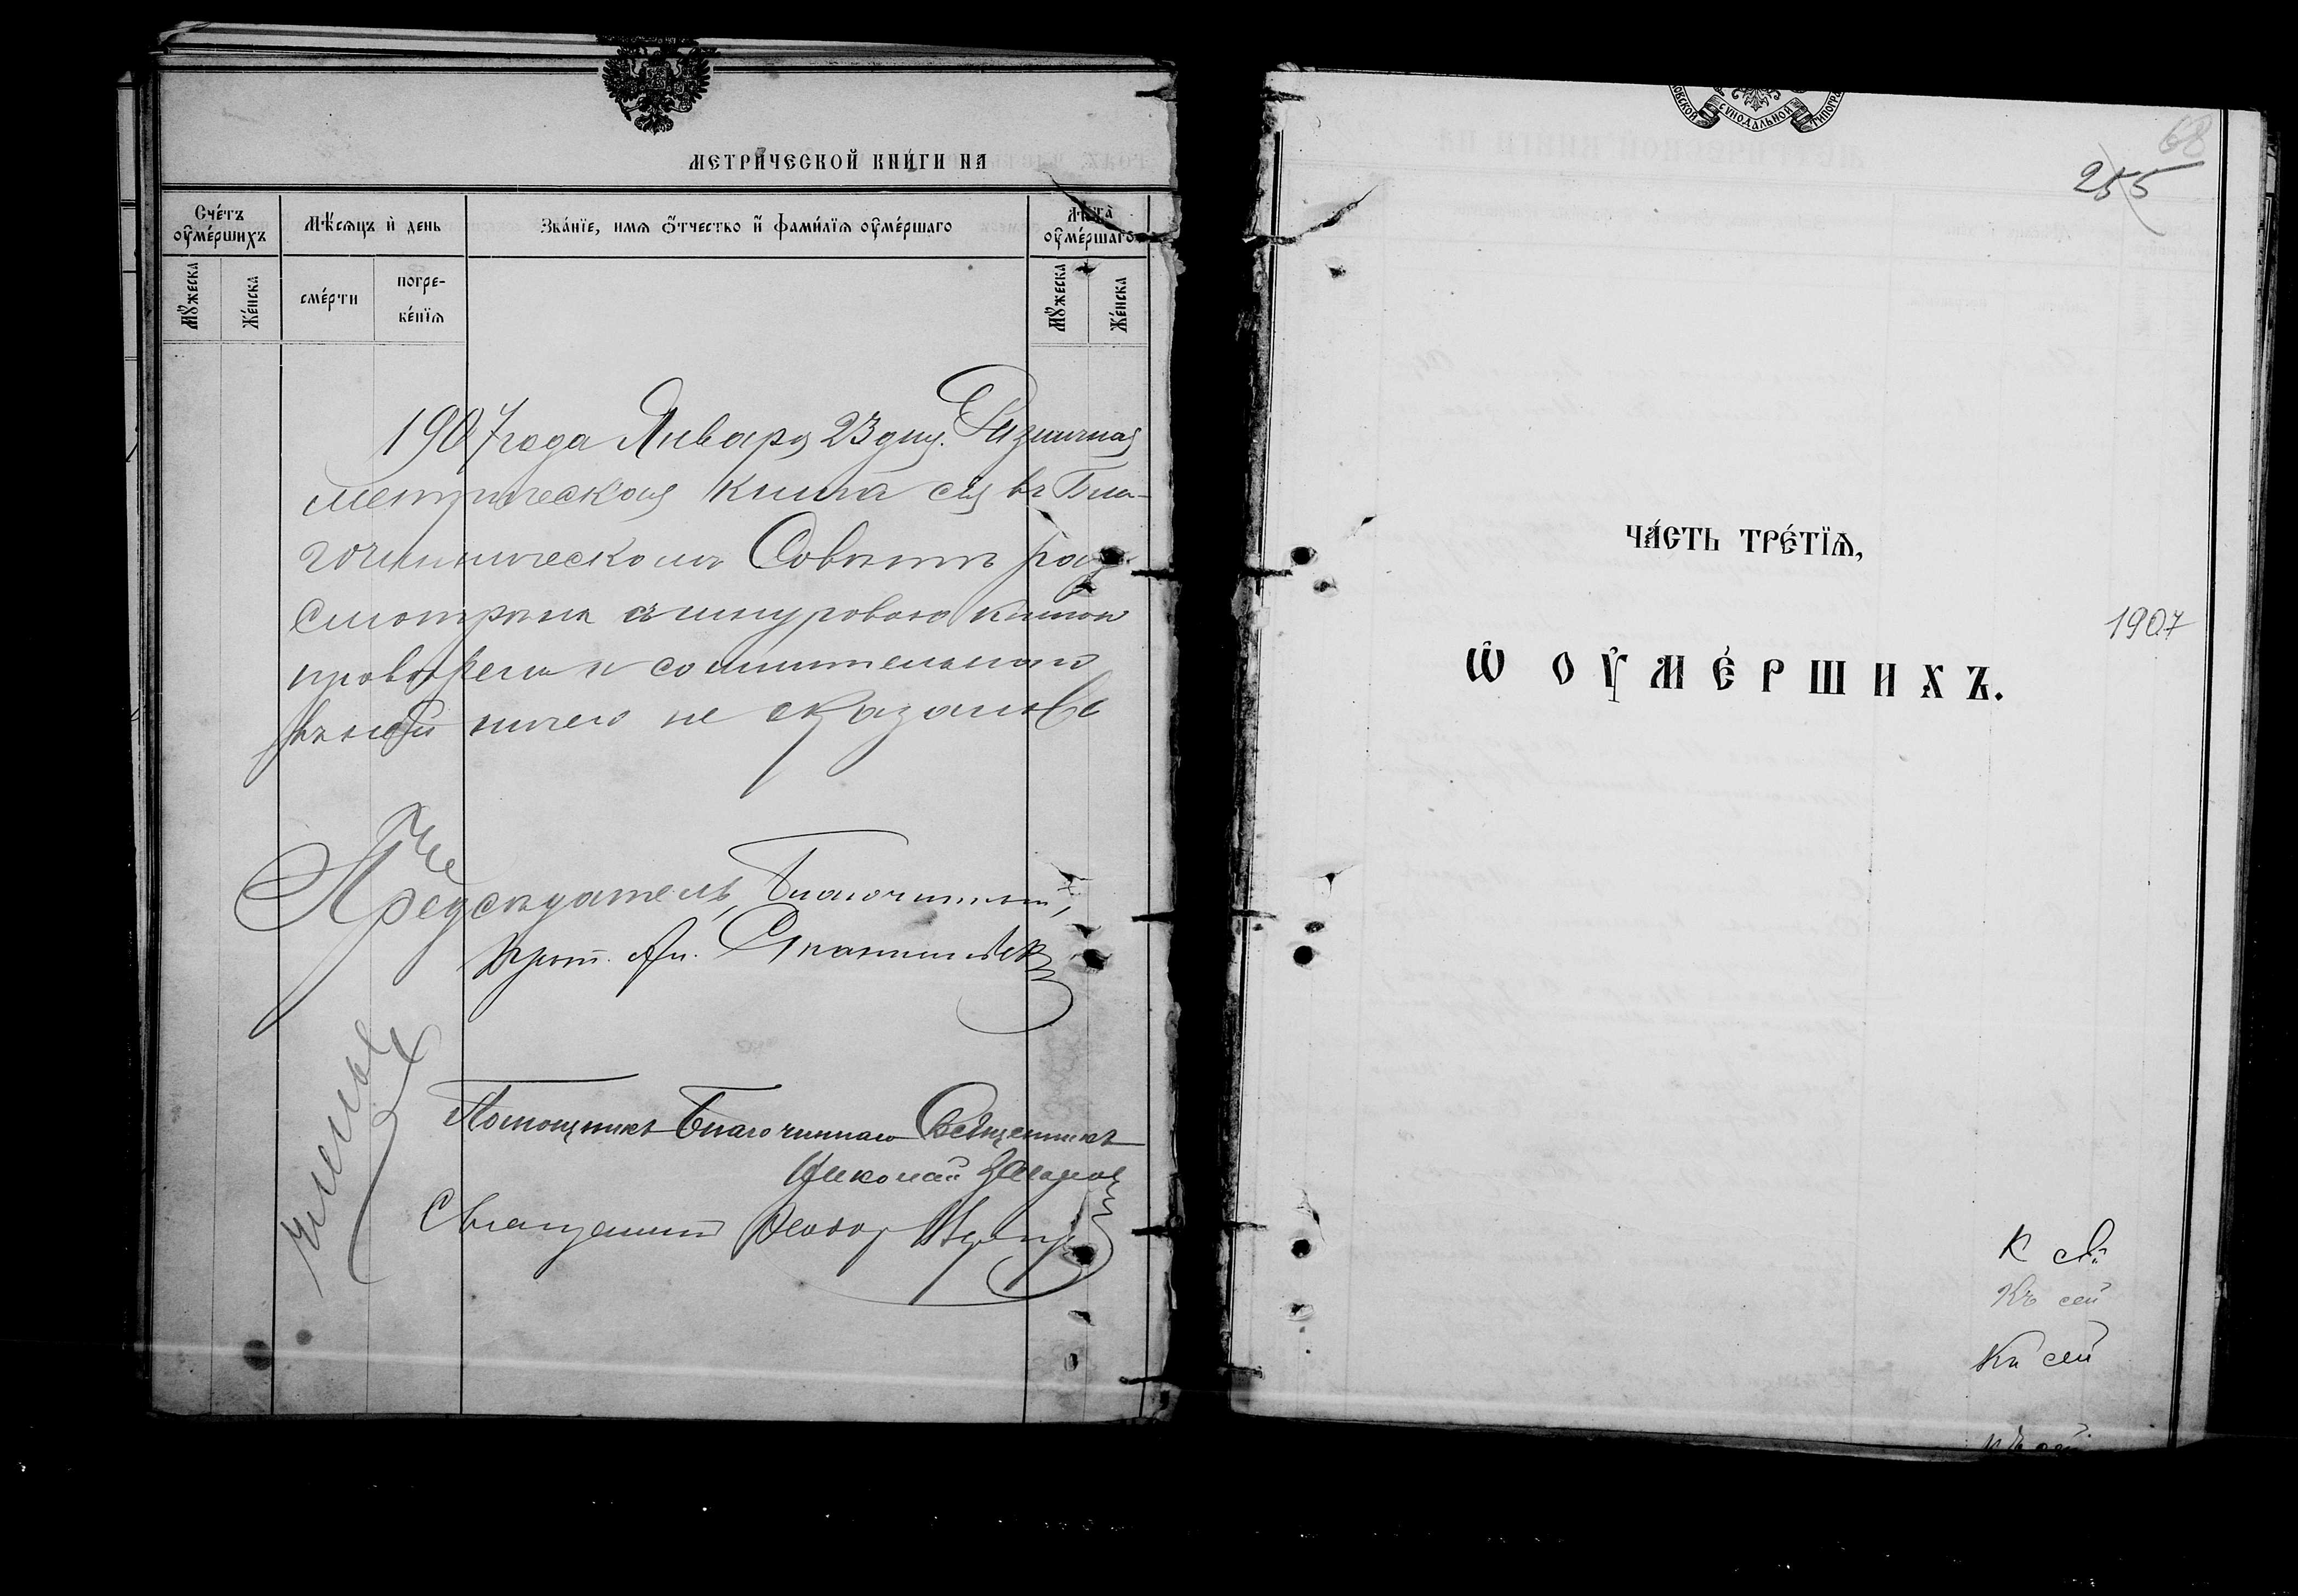 МЕТРИЧЕСКОЙ КНИГИ НА
Счетъ оумершихъ
Мѣсяцъ и день
Званїе, имя ѿтчество и фамилїя оумершаго
Лѣта оумершаго
Мꙋжеска
Женска
смерти
погре-
бенїя
Мꙋжеска
Женска
1907 года Января 23 дня. Ризничная
метрическая книга сія въ Бла-
гочинническомъ Совѣтѣ раз-
смотрѣна съ шнуровою книгою
провѣрена и сомнительнаго
въ ней ничего не оказалось
Предсѣдатель, Благочинный,
Прот. Ал.
Члены
Помощникъ Благочиннаго Священникъ
Николай
Священникъ Ѳеодор
СѴНОДАЛЬНОЙ
68
255
ЧАСТЬ ТРЕТЇЯ,
1907
Ѡ ОУМЕРШИХЪ.
К сей
Къ сей
Къ сей
Къ сей